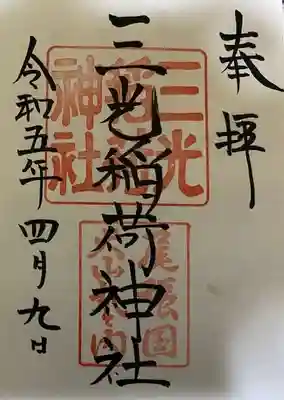 奉拝
三光稲荷神社
令和五年四月九日
三光
稲荷
神社
尾張国
犬山城内